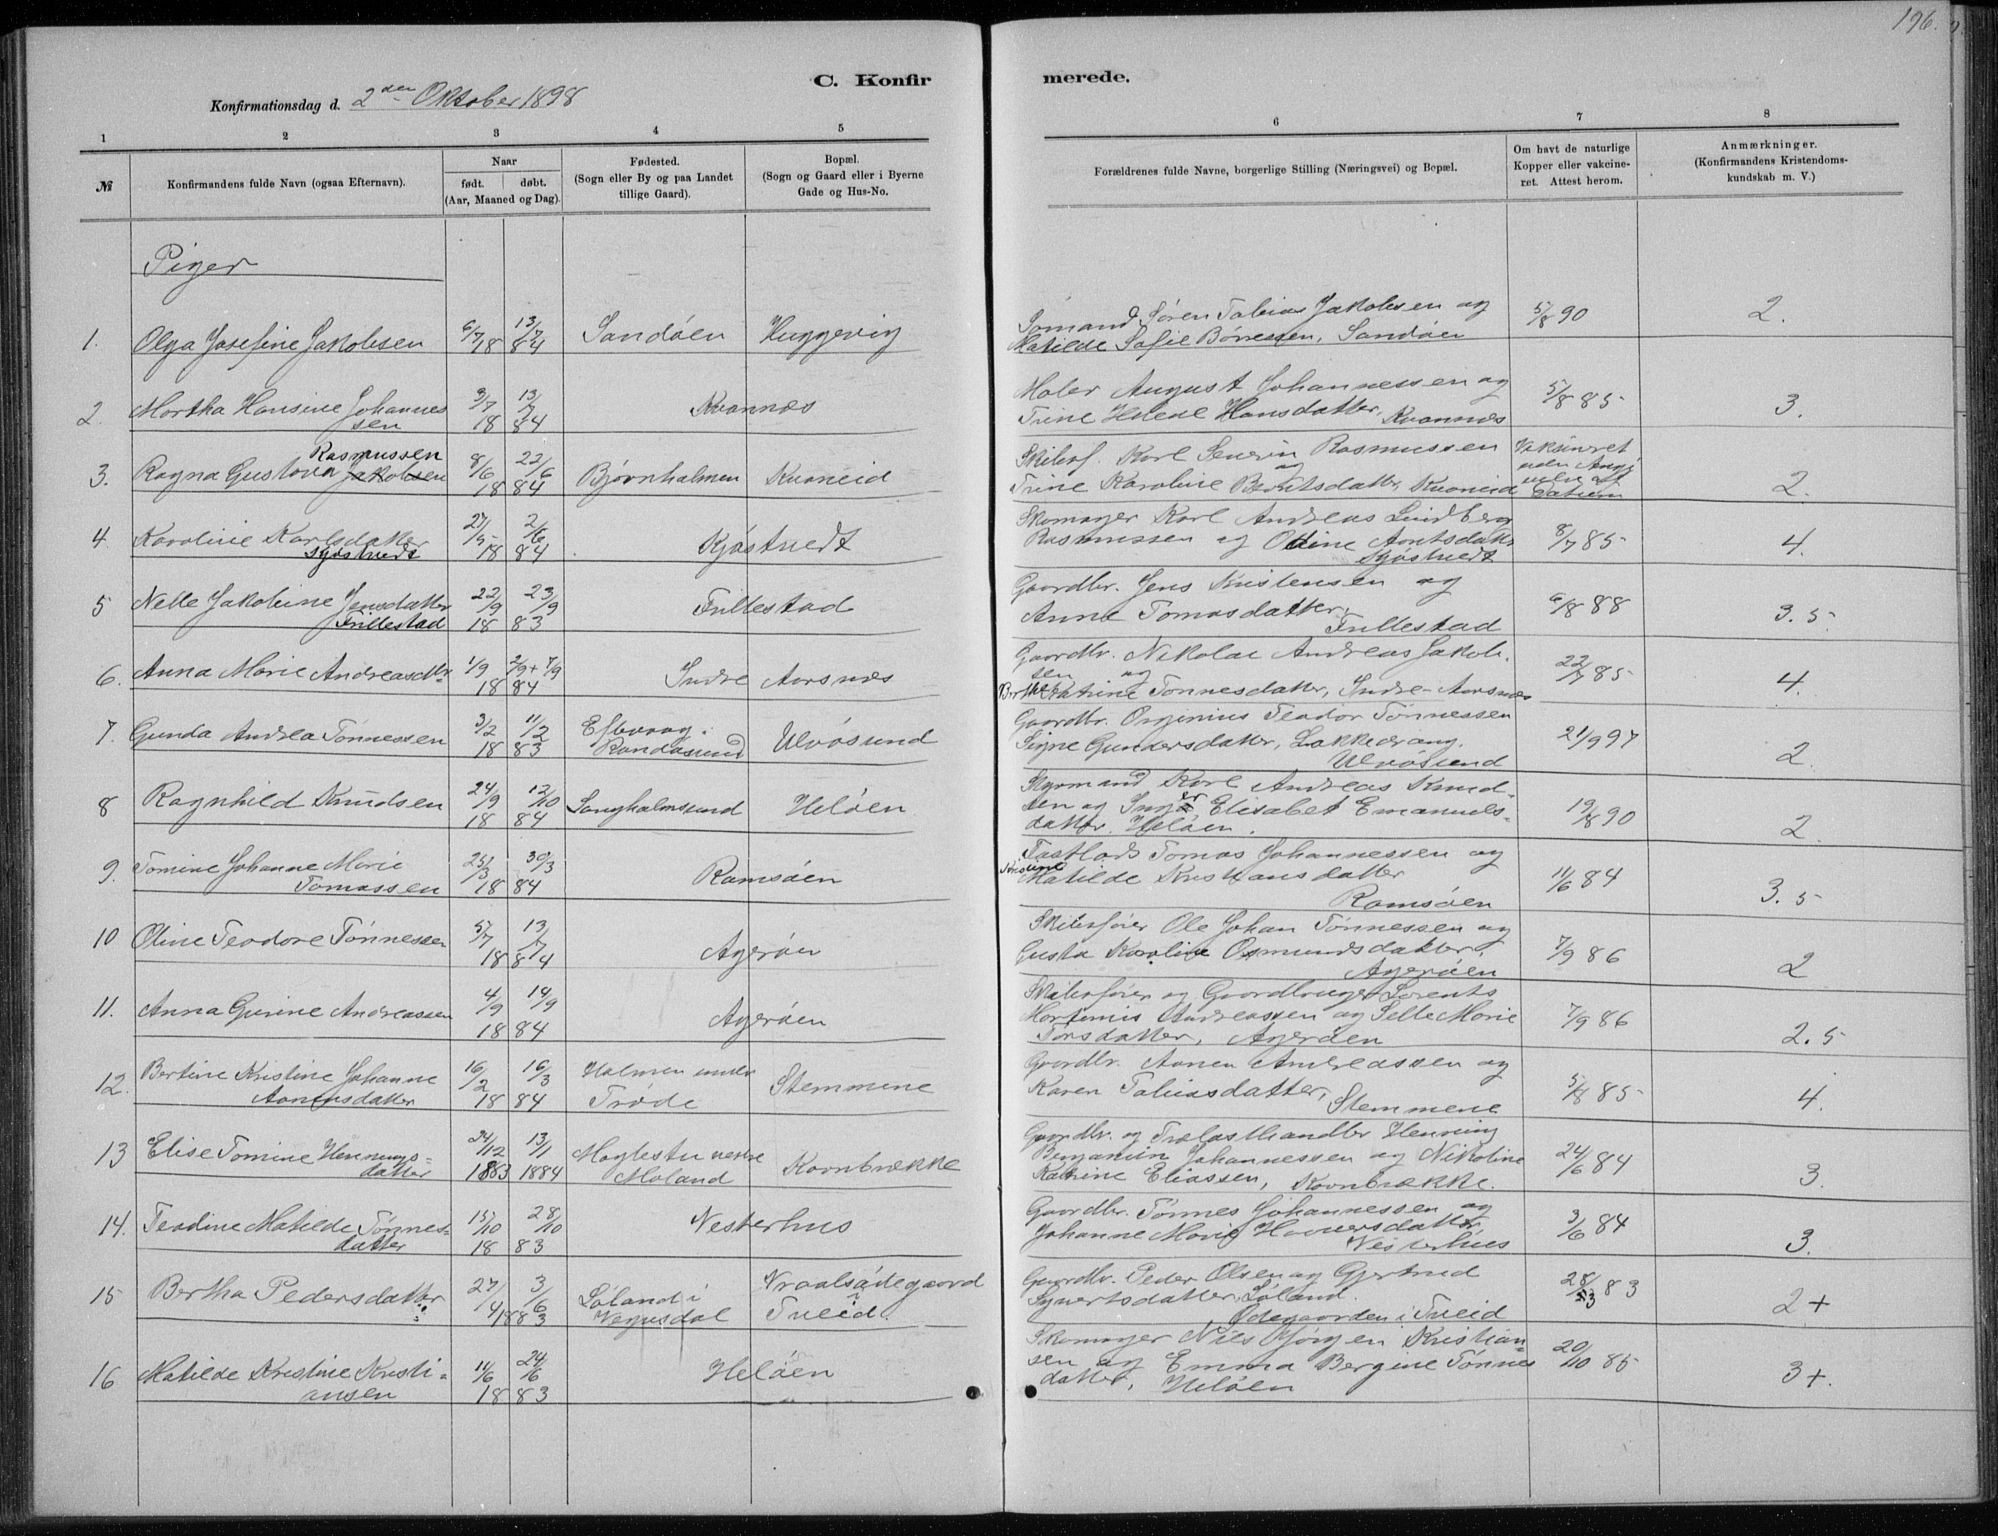 196.
C. Konfir
merede.
Konfirmationsdag d. 2den Oktober 1898
1 2 3 4 5 6 7 8
№
Konfirmandens fulde Navn (ogsaa Efternavn).
Naar
født. døbt.
(Aar, Maaned og Dag).
Fødested.
(Sogn eller By og paa Landet
tillige Gaard).
Bopæl.
(Sogn og Gaard eller i Byerne
Gade og Hus-No.
Forældrenes fulde Navne, borgerlige Stilling (Næringsvei) og Bopæl.
Om havt de naturlige
Kopper eller vakcine-
ret. Attest herom.
Anmærkninger.
(Konfirmandens Kristendoms-
kundskab m. V.)
Piger
1. Olga Josefine Jakobsen 6/7 1884 13/7 Sandøen Huggevig
Sømand Søren Tobias Jakobsen og
Matilde Sofie Børresen, Sandøen 5/8 90 2.
2. Martha Hansine Johannes
sen 3/7 1884 13/7 Kvannæs
Maler August Johannessen og
Trine Helene Hansdatter, Kvannæs 5/8 85 3.
Rasmussen
3. Ragna Gustava Jakobsen 8/6 1884 22/6 Bjørnholmen Kvaneid
Skibsf. Karl Severin Rasmussen
og
Trine Karoline Berntsdatter, Kvaneid Vaksineret
uden Angi
velse af
Datum 2.
4. Karoline Karlsdatter
Kjøstvedt 27/5 1884 2/6 Kjøstvedt
Skomager Karl Andreas Lindberg
Rasmussen og Otine Arntsdatter
Kjøstvedt 8/7 85 4.
5 Nelle Jakobine Jensdatter
Frillestad 22/9 1883 23/9 Frillestad
Gaardbr. Jens Kristensen og
Anne Tomasdatter,
Frillestad 6/8 88 3.5
6. Anna Marie Andreasdtr. 1/9 1884 2/9 + 7/9 Indre Aarsnæs
Gaardbr. Nikolai Andreas Jakob-
sen og
Berthe Katrine Tønnesdatter, Indre-Aarsnæs 22/7 85 4.
7. Gunda Andrea Tønnessen 3/2 1883 11/2 Eftevaag i
Randøsund Ulvøsund
Gaardbr. Orginius Teodor Tønnessen
Signe Gundersdatter, Lakkedrang,
Ulvøsund 21/9 97 2.
8 Ragnhild Knudsen 24/9 1884 12/10 Langholmsund Heløen
Styrmand Karl Andreas Knud-
sen og Inger Elisabet Emanuels-
datter. Heløen. 19/8 90 2.
9. Tomine Johanne Marie
Tomassen 25/3 1884 30/3 Ramsøen
Fastlods Tomas Johannessen og
Kristine
Matilde Kristiansdatter
Ramsøen 11/6 84 3.5
10 Oline Teodore Tønnessen 5/7 1884 13/7 Agerøen
Skibsfører Ole Johan Tønnessen og
Gusta Karoline Osmundsdatter,
Agerøen 7/9 86 2
11. Anna Gurine Andreassen 4/9 1884 14/9 Agerøen
Skibsfører og Gaardbruger Lorents
Martinius Andreassen og Selle Marie
Torsdatter, Agerøen 7/9 86 2.5
12. Bertine Kristine Johanne
Aanensdatter 16/2 1884 16/3 Holmen under
Trøde Stemmene
Gaardbr. Aanen Andreassen og
Karen Tobiasdatter,
Stemmene 5/8 85 4.
13 Elise Tomine Hennings-
datter 24/12 1883 13/1 1884 Moglestu vestre
Moland Kornbrække
Gaardbr. og Trælasthandler Henning
Benjamin Johannessen og Nikoline
Katrine Eliassen, Kornbrække. 24/6 84 3.
14. Teodine Matilde Tønnes-
datter 15/10 1883 28/10 Vesterhus
Gaardbr. Tønnes Johannessen og
Johanne Marie Haaversdatter,
Vesterhus 3/6 84 3.
15 Bertha Pedersdatter 27/4 1883 3/6 Løland i
Vegusdal Vraalsødegaard
Tveid.
Gaardbr. Peder Olsen og Gjertrud
Syvertsdatter, Løland.
Ødegaarden i Tveid 83 2+
16 Matilde Kristine Kristi-
ansen 11/6 1883 24/6 Heløen
Skomager Nils Jørgen Kristian-
sen og Emma Bergine Tønnes
datter, Heløen 20/10 85 3+.